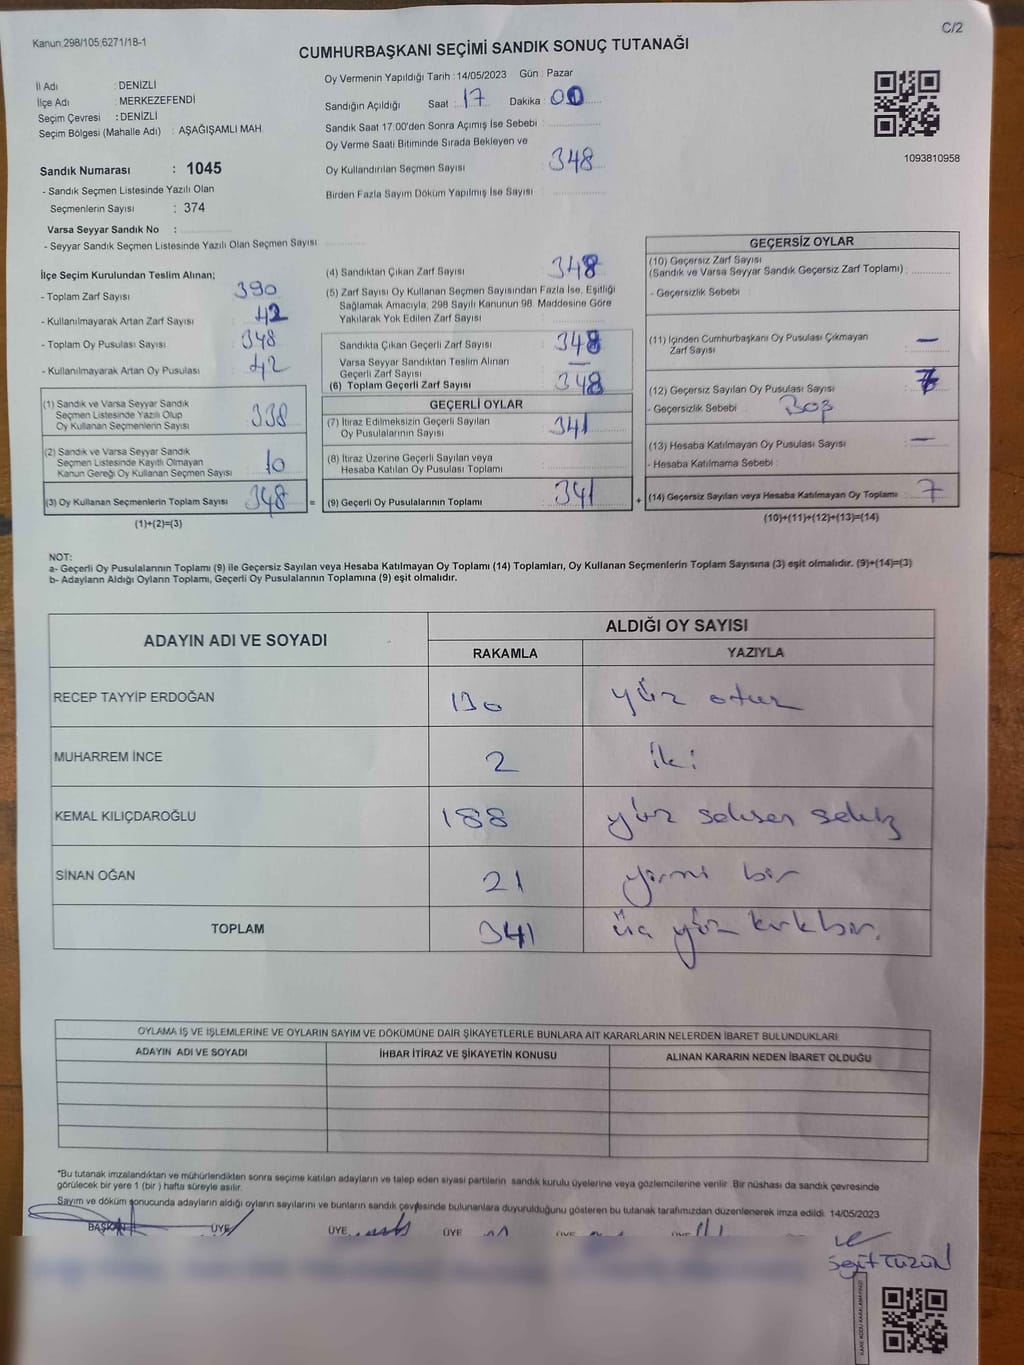 Kanun:298/105;6271/18-1
C/2
CUMHURBAŞKANI SEÇİMİ SANDIK SONUÇ TUTANAĞI
İl Adı : DENİZLİ
İlçe Adı : MERKEZEFENDİ
Seçim Çevresi : DENİZLİ
Seçim Bölgesi (Mahalle Adı) : AŞAĞIŞAMLI MAH.
Sandık Numarası : 1045
- Sandık Seçmen Listesinde Yazılı Olan
Seçmenlerin Sayısı : 374
Varsa Seyyar Sandık No :
- Seyyar Sandık Seçmen Listesinde Yazılı Olan Seçmen Sayısı
Oy Vermenin Yapıldığı Tarih : 14/05/2023 Gün : Pazar
Sandığın Açıldığı Saat : 17 Dakika : 00
Sandık Saat 17:00'den Sonra Açımış İse Sebebi :
Oy Verme Saati Bitiminde Sırada Bekleyen ve
Oy Kullandırılan Seçmen Sayısı : 348
Birden Fazla Sayım Döküm Yapılmış İse Sayısı :
1093810958
İlçe Seçim Kurulundan Teslim Alınan;
- Toplam Zarf Sayısı : 390
- Kullanılmayarak Artan Zarf Sayısı : 42
- Toplam Oy Pusulası Sayısı : 348
- Kullanılmayarak Artan Oy Pusulası : 42
(1) Sandık ve Varsa Seyyar Sandık
Seçmen Listesinde Yazılı Olup
Oy Kullanan Seçmenlerin Sayısı : 338
(2) Sandık ve Varsa Seyyar Sandık
Seçmen Listesinde Kayıtlı Olmayan
Kanun Gereği Oy Kullanan Seçmen Sayısı : 10
(3) Oy Kullanan Seçmenlerin Toplam Sayısı : 348 =
(1)+(2)=(3)
(4) Sandıktan Çıkan Zarf Sayısı : 348
(5) Zarf Sayısı Oy Kullanan Seçmen Sayısından Fazla İse, Eşitliği
Sağlamak Amacıyla, 298 Sayılı Kanunun 98. Maddesine Göre
Yakılarak Yok Edilen Zarf Sayısı :
Sandıkta Çıkan Geçerli Zarf Sayısı : 348
Varsa Seyyar Sandıktan Teslim Alınan
Geçerli Zarf Sayısı : —
(6) Toplam Geçerli Zarf Sayısı : 348
GEÇERLİ OYLAR
(7) İtiraz Edilmeksizin Geçerli Sayılan
Oy Pusulalarının Sayısı : 341
(8) İtiraz Üzerine Geçerli Sayılan veya
Hesaba Katılan Oy Pusulası Toplamı :
(9) Geçerli Oy Pusulalarının Toplamı : 341 +
GEÇERSİZ OYLAR
(10) Geçersiz Zarf Sayısı
(Sandık ve Varsa Seyyar Sandık Geçersiz Zarf Toplamı) :
- Geçersizlik Sebebi :
(11) İçinden Cumhurbaşkanı Oy Pusulası Çıkmayan
Zarf Sayısı : —
(12) Geçersiz Sayılan Oy Pusulası Sayısı : 7
- Geçersizlik Sebebi : Boş
(13) Hesaba Katılmayan Oy Pusulası Sayısı : —
- Hesaba Katılmama Sebebi :
(14) Geçersiz Sayılan veya Hesaba Katılmayan Oy Toplamı : 7
(10)+(11)+(12)+(13)=(14)
NOT:
a- Geçerli Oy Pusulalarının Toplamı (9) ile Geçersiz Sayılan veya Hesaba Katılmayan Oy Toplamı (14) Toplamları, Oy Kullanan Seçmenlerin Toplam Sayısına (3) eşit olmalıdır. (9)+(14)=(3)
b- Adayların Aldığı Oyların Toplamı, Geçerli Oy Pusulalarının Toplamına (9) eşit olmalıdır.
ADAYIN ADI VE SOYADI
ALDIĞI OY SAYISI
RAKAMLA YAZIYLA
RECEP TAYYİP ERDOĞAN 130 yüz otuz
MUHARREM İNCE 2 iki
KEMAL KILIÇDAROĞLU 188 yüz seksen sekiz
SİNAN OĞAN 21 yirmi bir
TOPLAM 341 üç yüz kırkbir.
OYLAMA İŞ VE İŞLEMLERİNE VE OYLARIN SAYIM VE DÖKÜMÜNE DAİR ŞİKAYETLERLE BUNLARA AİT KARARLARIN NELERDEN İBARET BULUNDUKLARI
ADAYIN ADI VE SOYADI İHBAR İTİRAZ VE ŞİKAYETİN KONUSU ALINAN KARARIN NEDEN İBARET OLDUĞU
*Bu tutanak imzalandıktan ve mühürlendikten sonra seçime katılan adayların ve talep eden siyasi partilerin sandık kurulu üyelerine veya gözlemcilerine verilir. Bir nüshası da sandık çevresinde
görülecek bir yere 1 (bir ) hafta süreyle asılır.
Sayım ve döküm sonucunda adayların aldığı oyların sayılarını ve bunların sandık çevresinde bulunanlara duyurulduğunu gösteren bu tutanak tarafımızdan düzenlenerek imza edildi. 14/05/2023
BAŞKAN ÜYE ÜYE ÜYE ÜYE ÜYE